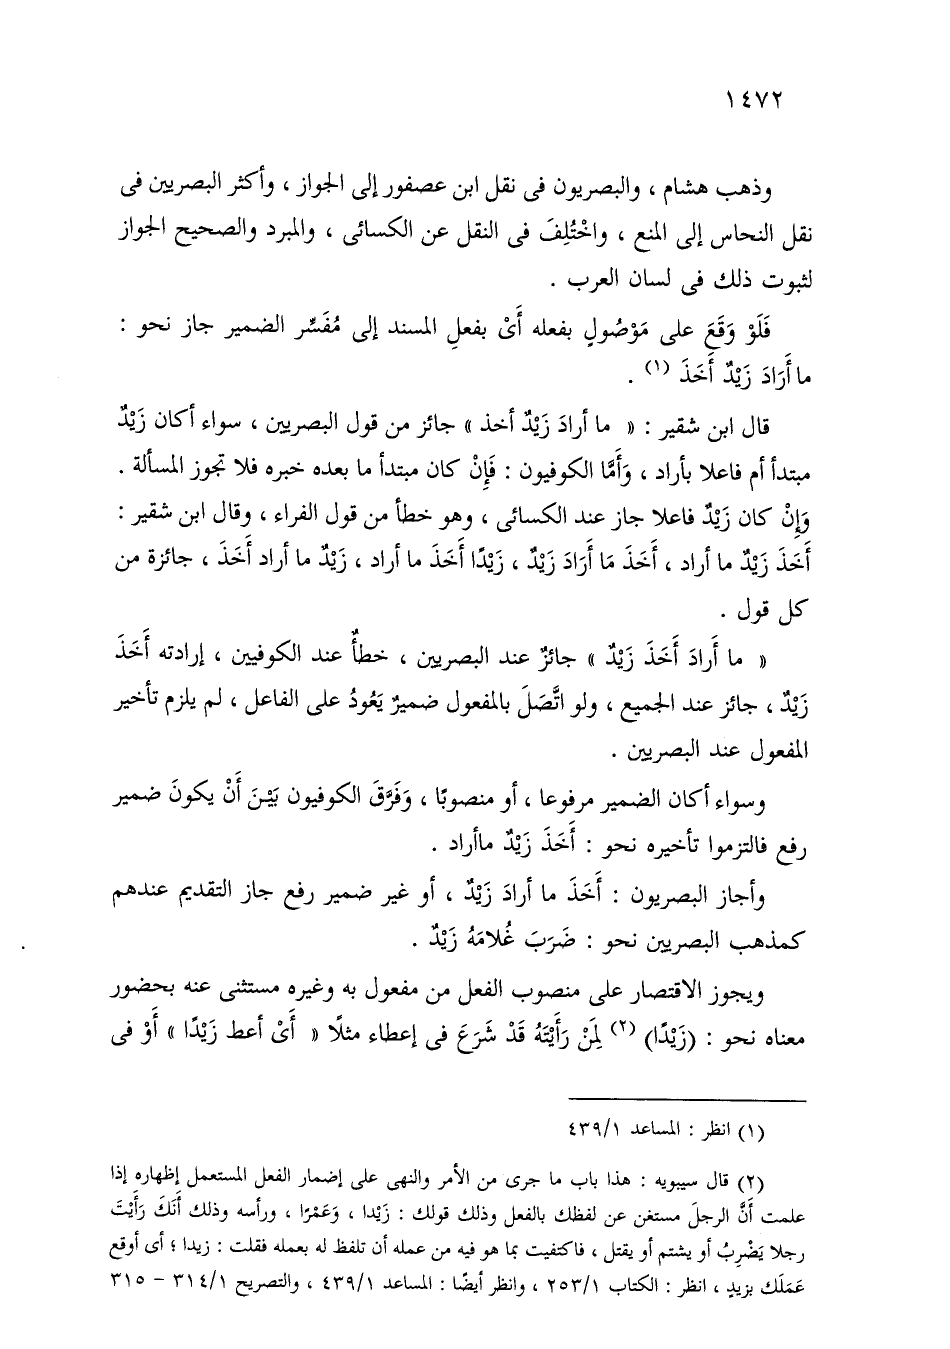 ١٤٧٢
وذهب هشام ، والبصريون فى نقل ابن عصفور إلى الجواز ، وأكثر البصريين فى
نقل النحاس إلى المنع ، واخْتُلِفَ فى النقل عن الكسائى ، والمبرد والصحيح الجواز
لثبوت ذلك فى لسان العرب .
فَلَوْ وَقَعَ على مَوْصُولٍ بفعله أَىْ بفعلِ المسند إلى مُفَسِّر الضمير جاز نحو :
ما أَرَادَ زَيْدٌ أَخَذَ (١) .
قال ابن شقير : « ما أرادَ زَيْدٌ أخذ » جائز من قول البصريين ، سواء أكان زَيْدٌ
مبتدأ أم فاعلا بأراد ، وَأَمَّا الكوفيون : فَإِنْ كان مبتدأ ما بعده خبره فلا تجوز المسألة .
وَإِنْ كان زَيْدٌ فاعلا جاز عند الكسائى ، وهو خطأ من قول الفراء ، وقال ابن شقير :
أَخَذَ زَيْدٌ ما أراد ، أَخَذَ مَا أَرَادَ زَيْدٌ ، زَيْدًا أَخَذَ ما أراد ، زَيْدٌ ما أراد أَخَذَ ، جائزة من
كل قول .
« ما أَرادَ أَخَذَ زَيْدٌ » جائزٌ عند البصريين ، خطأٌ عند الكوفيين ، إرادته أَخَذَ
زَيْدٌ ، جائز عند الجميع ، ولو اتَّصَلَ بالمفعول ضميرٌ يَعُودُ على الفاعل ، لم يلزم تأخير
المفعول عند البصريين .
وسواء أكان الضمير مرفوعا ، أو منصوبًا ، وَفَرَّقَ الكوفيون بَيْنَ أَنْ يكونَ ضمير
رفع فالتزموا تأخيره نحو : أَخَذَ زَيْدٌ ماأراد .
وأجاز البصريون : أَخَذَ ما أرادَ زَيْدٌ ، أو غير ضمير رفع جاز التقديم عندهم
كمذهب البصريين نحو : ضَرَبَ غُلامَهُ زَيْدٌ .
ويجوز الاقتصار على منصوب الفعل من مفعول به وغيره مستثنى عنه بحضور
معناه نحو : (زَيْدًا) (٢) لِمَنْ رَأَيْتَهُ قَدْ شَرَعَ فى إعطاء مثلًا « أَىْ أعط زَيْدًا » أَوْ فى
(١) انظر : المساعد ٤٣٩/١
(٢) قال سيبويه : هذا باب ما جرى من الأمر والنهى على إضمار الفعل المستعمل إظهاره إذا
علمت أَنَّ الرجلَ مستغن عن لفظك بالفعل وذلك قولك : زَيْدا ، وَعَمْرًا ، ورأسه وذلك أَنكَ رَأَيْتَ
رجلا يَضْرِبُ أو يشتم أو يقتل ، فاكتفيت بما هو فيه من عمله أن تلفظ له بعمله فقلت : زيدا ؛ أى أوقع
عَمَلَك بزيدٍ ، انظر : الكتاب ٢٥٣/١ ، وانظر أيضًا : المساعد ٤٣٩/١ ، والتصريح ٣١٤/١ – ٣١٥